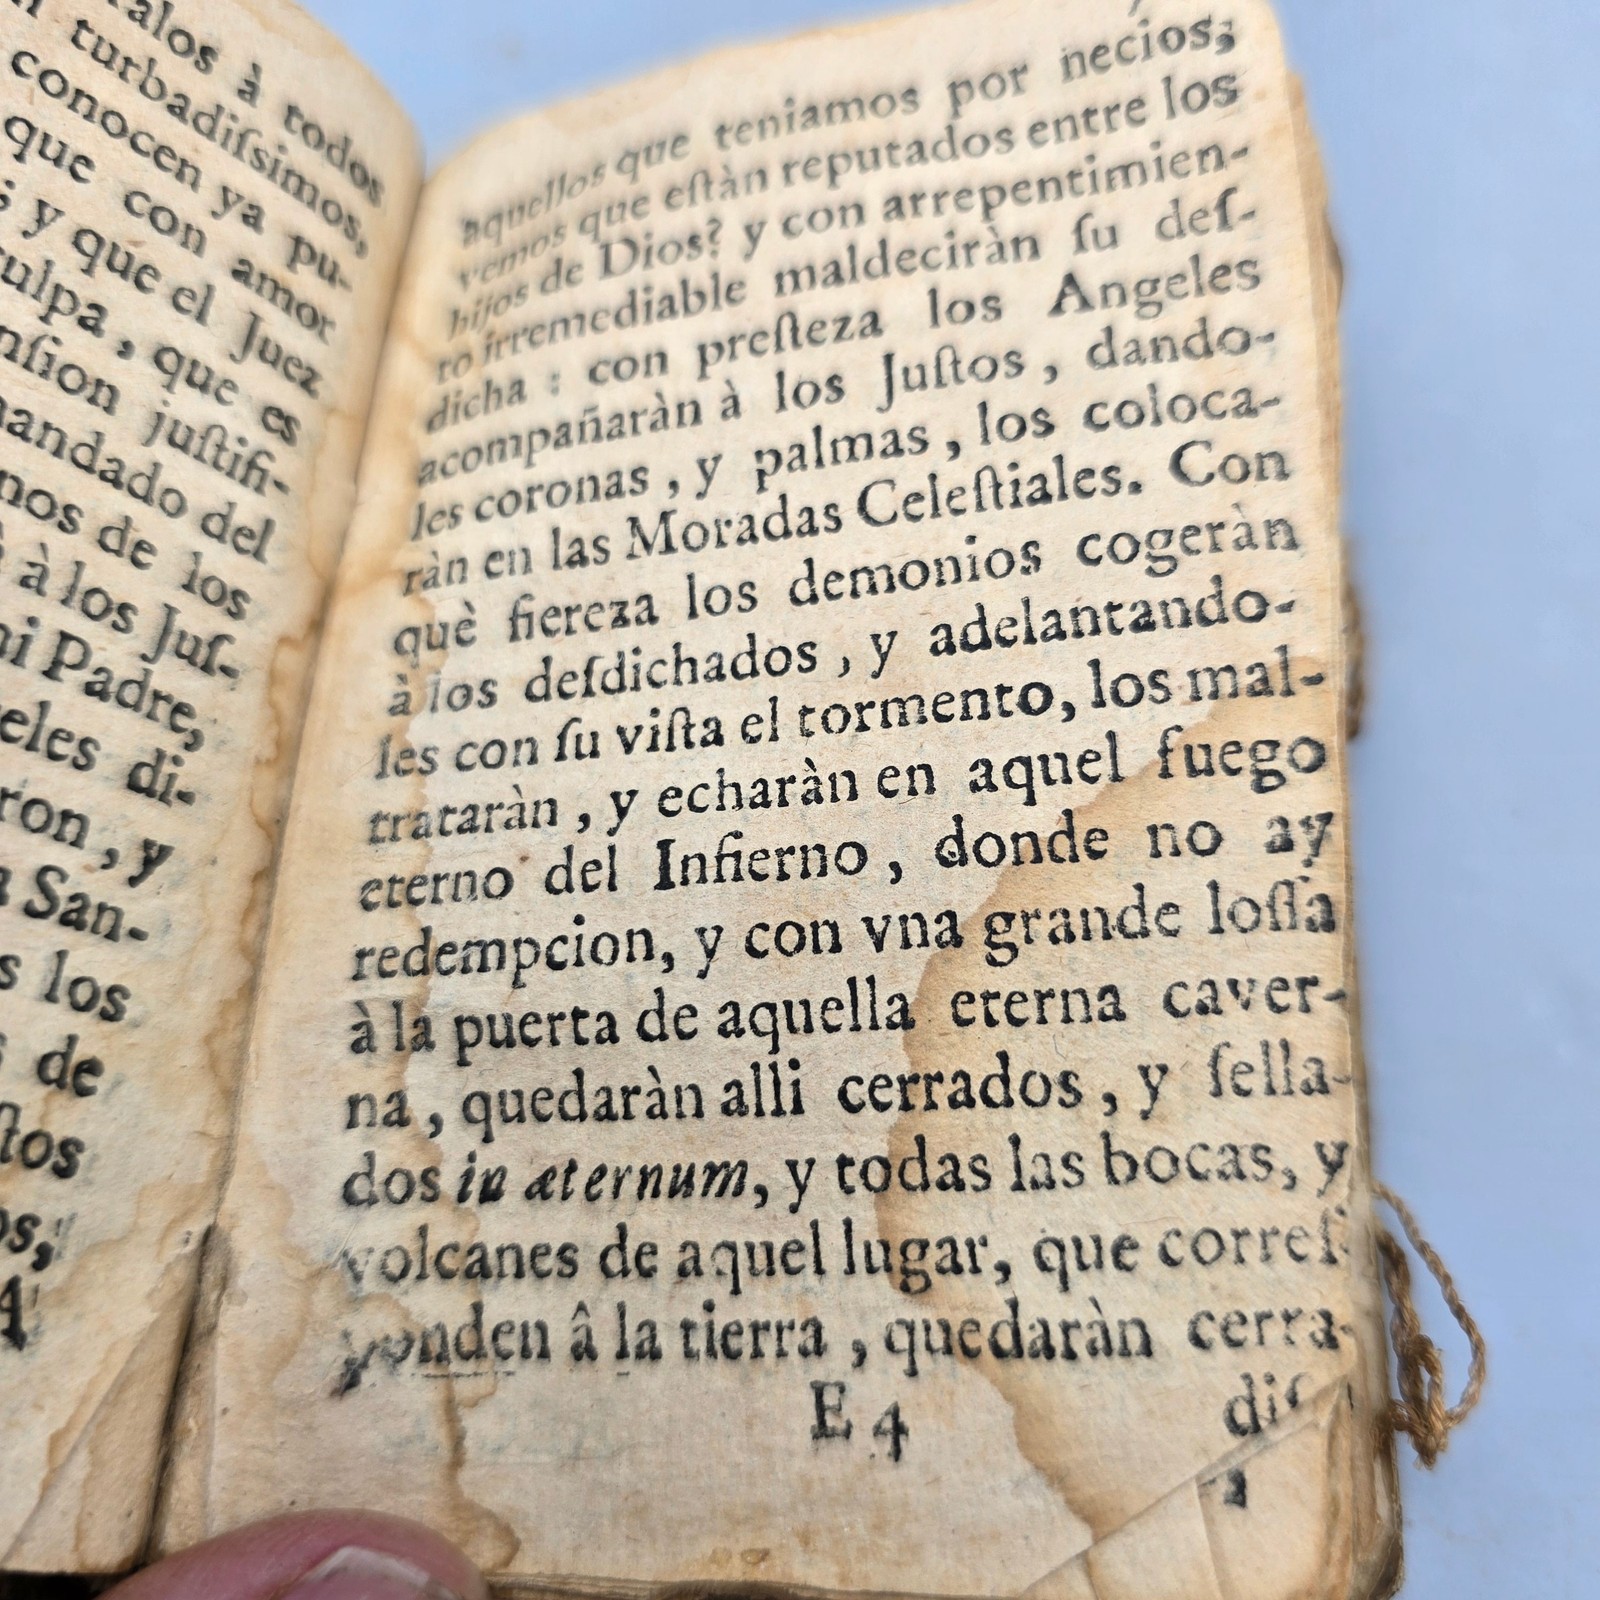 alos à todos
turbadiſsimos,
conocen ya pu-
que con amor
; y que el Juez
culpa, que es
nſion juſtifi-
mandado del
nos de los
à los Juſ-
mi Padre,
eles di-
ron, y
San-
s los
de
ſtos
os,
4
aquellos que teniamos por necios;
vemos que eſtàn reputados entre los
hijos de Dios? y con arrepentimien-
to irremediable maldeciràn ſu deſ-
dicha : con preſteza los Angeles
acompañaràn à los Juſtos, dando-
les coronas, y palmas, los coloca-
ràn en las Moradas Celeſtiales. Con
què fiereza los demonios cogeràn
à los deſdichados, y adelantando-
les con ſu viſta el tormento, los mal-
trataràn, y echaràn en aquel fuego
eterno del Infierno, donde no ay
redempcion, y con vna grande loſſa
à la puerta de aquella eterna caver-
na, quedaràn alli cerrados, y ſella-
dos in æternum, y todas las bocas, y
volcanes de aquel lugar, que correſ-
ponden â la tierra, quedaràn cerra-
E 4